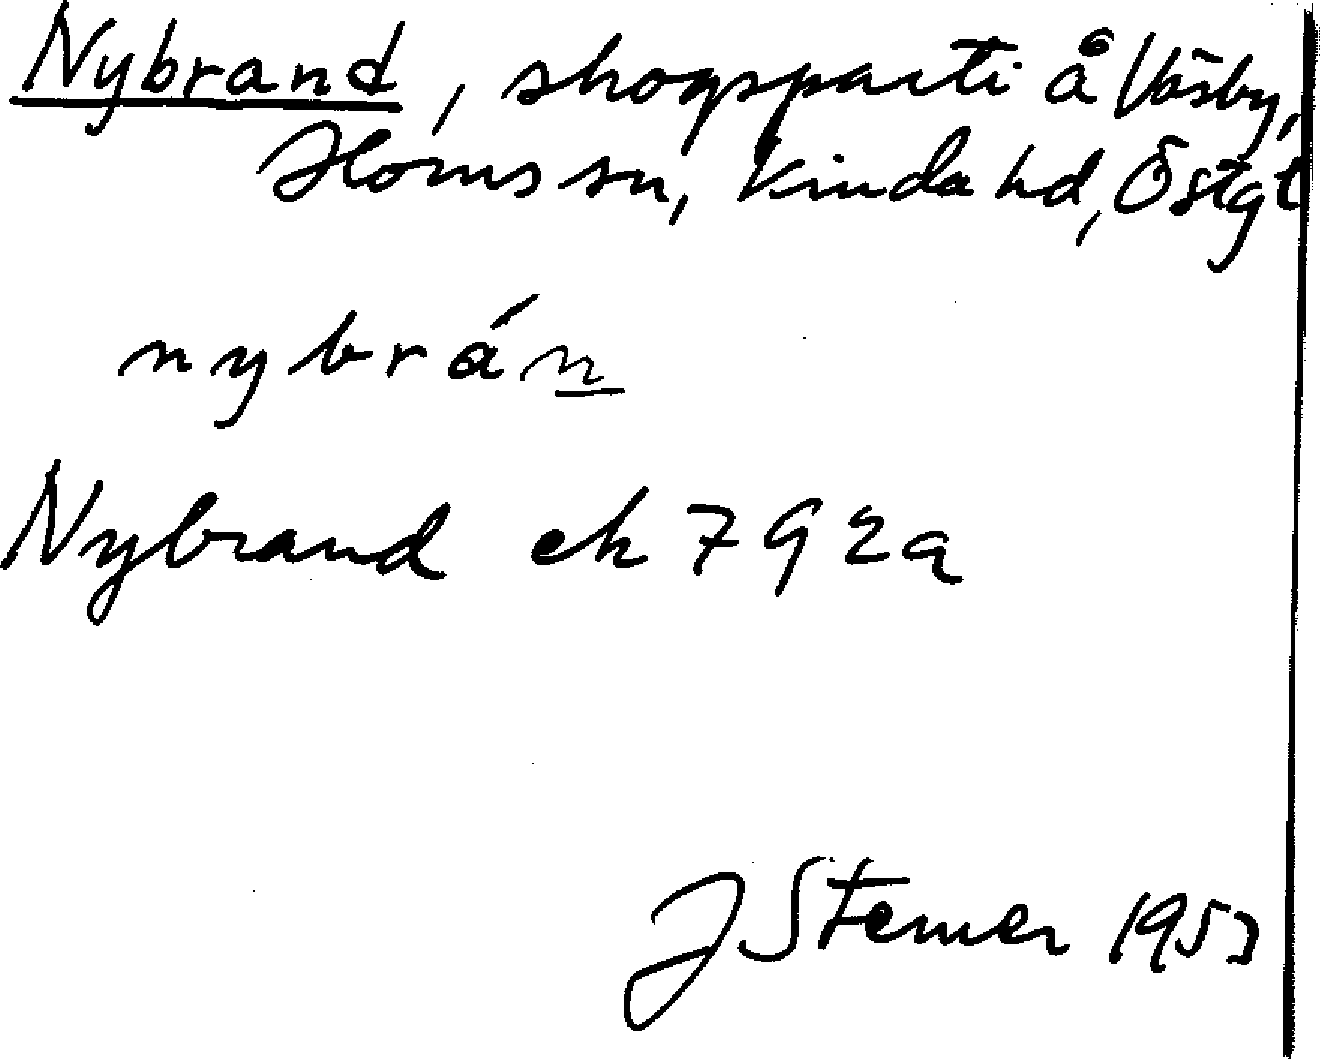 Nybrand, skogsparti å Väsby,
Horns sn, Kinda hd, Östgt
nybrán
Nybrand ek 792a
J Sterner 1953